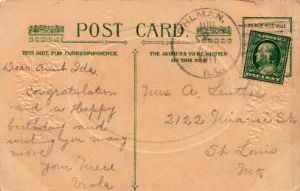 POST CARD
THIS SIDE FOR CORRESPONDENCE
THE ADDRESS TO BE WRITTEN
ON THIS SIDE
ILL.
ONE CENT
Dear Aunt Ida,
Congratulation
and a Happy
birthday and
wishing you many
more.
Your Niece
Viola
Mrs A
2122
St Louis
Mo